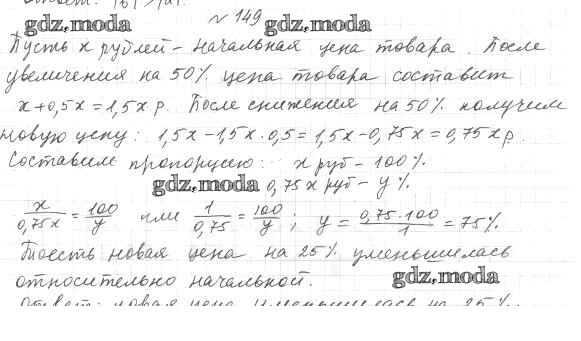 Ответ: |b| > |a|.
№ 149
gdz.moda gdz.moda
Пусть x рублей - начальная цена товара. После
увеличения на 50% цена товара составит
x+0,5x=1,5x р. После снижения на 50% получим
новую цену: 1,5x-1,5x·0,5=1,5x-0,75x=0,75x р.
Составим пропорцию: x руб - 100%.
gdz.moda 0,75x руб - y %.
x/0,75x = 100/y или 1/0,75 = 100/y ; y = 0,75·100/1 = 75%.
Тоесть новая цена на 25% уменьшилась
относительно начальной.
gdz.moda
Ответ: новая цена уменьшилась на 25%.